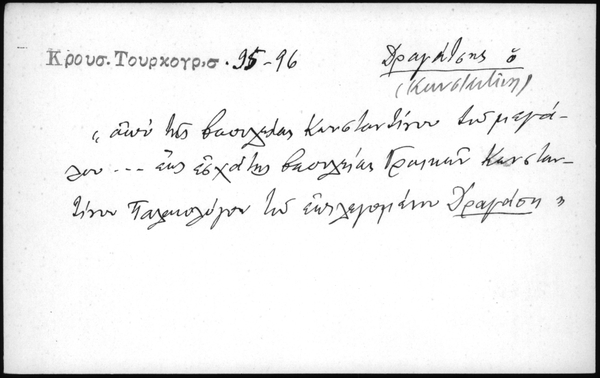 Κρουσ. Τουρκογρ.σ. 95-96
Δραγάτσης ὁ
(Κωνσταντίνος)
« ἀπὸ τῆς βασιλείας Κωνσταντίνου τοῦ μεγά-
λου --- ἕως ἐσχάτης βασιλείας Γραικῶν Κωνσταν-
τίνου Παλαιολόγου τοῦ ἐπιλεγομένου Δραγάση »